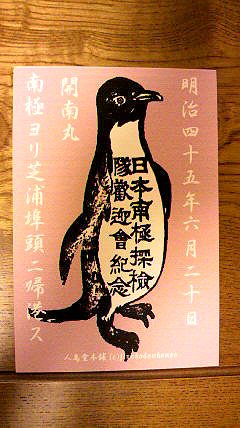 明治四十五年六月二十日
日本南極探檢
隊歡迎會紀念
開南丸
南極ヨリ芝浦埠頭ニ帰港ス